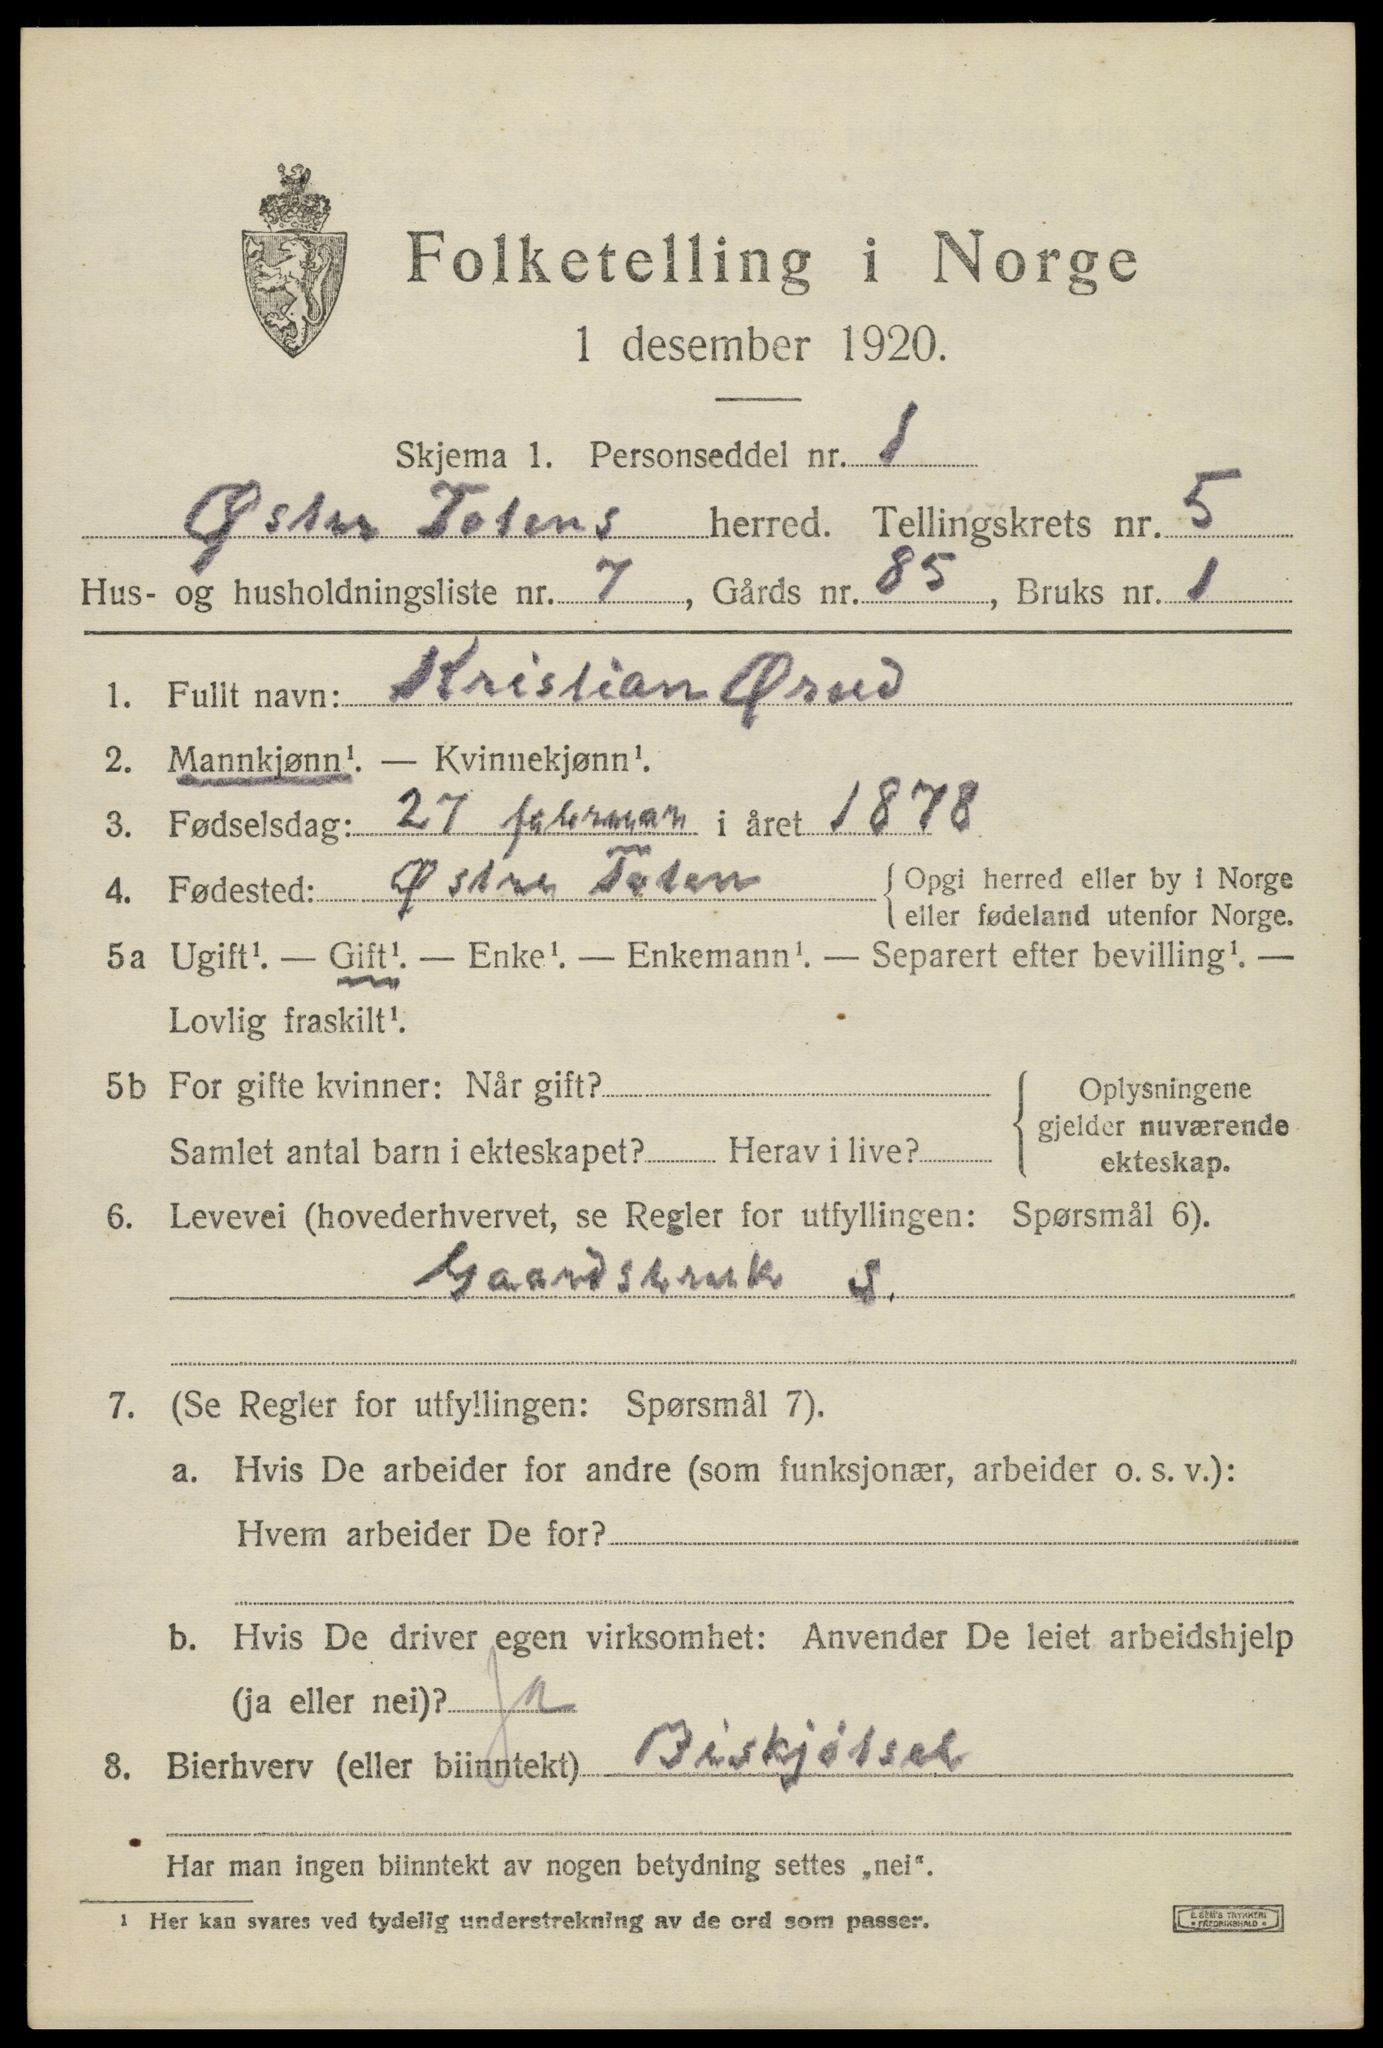 Folketelling i Norge
1 desember 1920.
Skjema 1. Personseddel nr. 1
Østre Totens herred. Tellingskrets nr. 5
Hus- og husholdningsliste nr. 7, Gårds nr. 85, Bruks nr. 1
1. Fullt navn: Kristian Ørud
2. Mannkjønn¹. — Kvinnekjønn¹.
3. Fødselsdag: 27 februar i året 1878
4. Fødested: Østre Toten { Opgi herred eller by i Norge
eller fødeland utenfor Norge.
5a Ugift¹. — Gift¹. — Enke¹. — Enkemann¹. — Separert efter bevilling¹. —
Lovlig fraskilt¹.
5b For gifte kvinner: Når gift?
Samlet antal barn i ekteskapet? Herav i live?
{ Oplysningene
gjelder nuværende
ekteskap.
6. Levevei (hovederhvervet, se Regler for utfyllingen: Spørsmål 6).
Gaardsbruk S.
7. (Se Regler for utfyllingen: Spørsmål 7).
a. Hvis De arbeider for andre (som funksjonær, arbeider o. s. v.):
Hvem arbeider De for?
b. Hvis De driver egen virksomhet: Anvender De leiet arbeidshjelp
(ja eller nei)? Ja
8. Bierhverv (eller biinntekt)
Har man ingen biinntekt av nogen betydning settes „nei“.
¹ Her kan svares ved tydelig understrekning av de ord som passer.
E. SEM'S TRYKKERI
• FREDRIKSHALD •